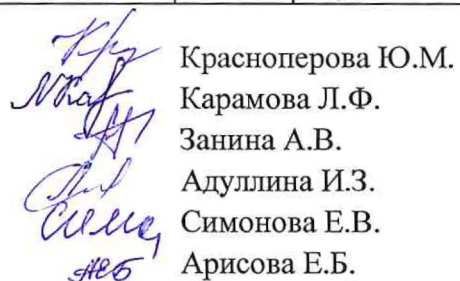 Красноперова Ю.М.
Карамова Л.Ф.
Занина А.В.
Адуллина И.З.
Симонова Е.В.
Арисова Е.Б.